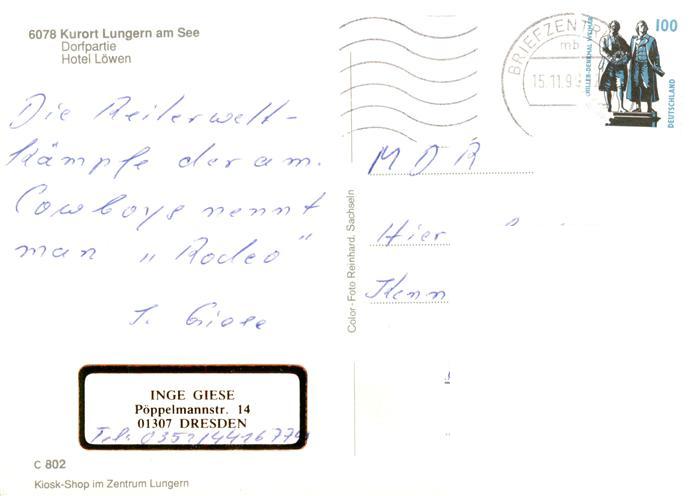 6078 Kurort Lungern am See
Dorfpartie
Hotel Löwen
Die Reiterwelt-
kämpfe der am.
Cowboys nennt
man „Rodeo"
I. Giese
INGE GIESE
Pöppelmannstr. 14
01307 DRESDEN
Tel: 0351/4416774
C 802
Kiosk-Shop im Zentrum Lungern
Color-Foto Reinhard. Sachseln
BRIEFZENTR
mb
15.11.9
SCHILLER-DENKMAL WEIMAR
100
DEUTSCHLAND
MDR
Hier
Kenn